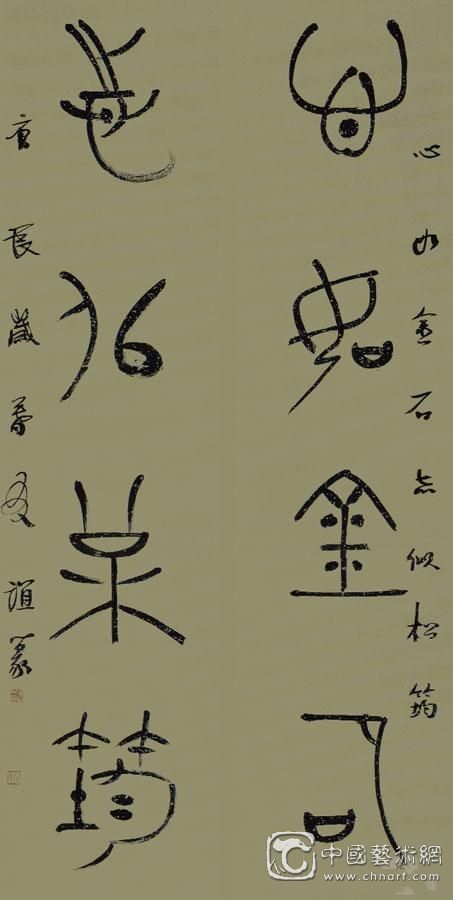 心如金石志似松筠
心如金石
志似松筠
庚辰歲暮友誼篆
中國藝術網
www.chnart.com